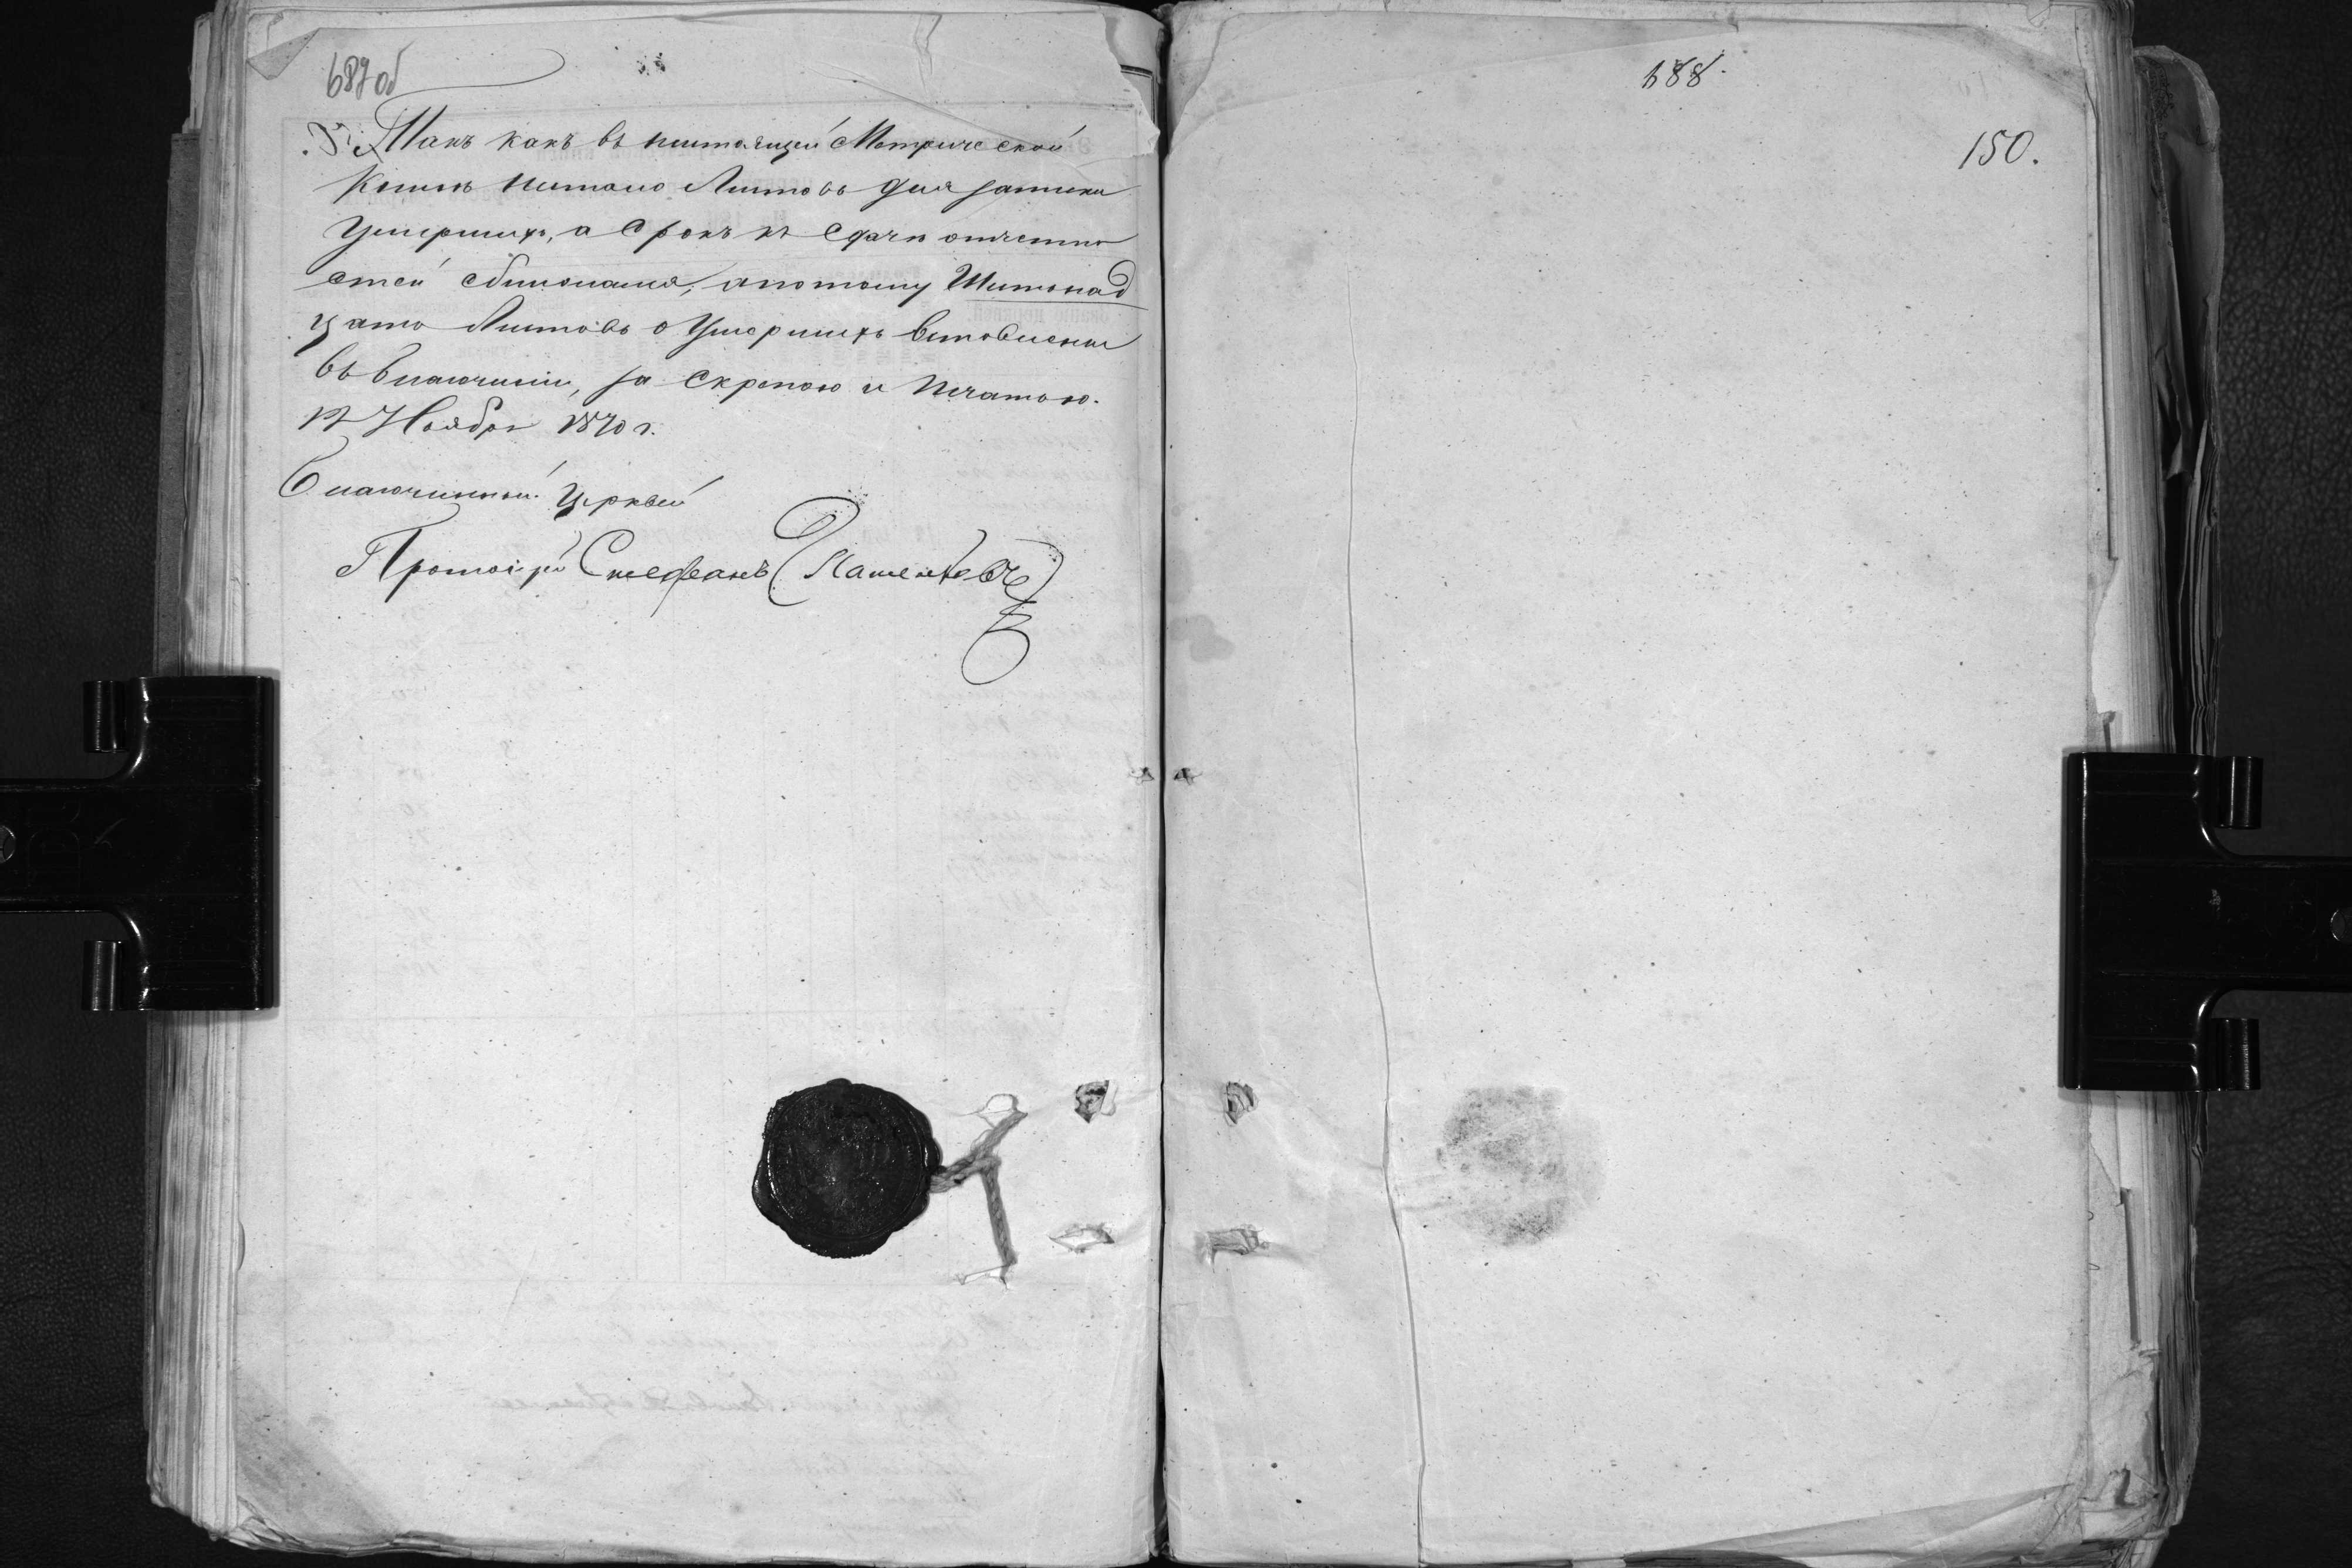 687 об
Такъ какъ въ настоящей Метрической
Книгѣ нестало Листовъ для записки
Умершихъ, а Срокъ къ Сдачѣ отчетно
стей сближался, а потому Шестнад
цать Листовъ о Умершихъ
въ благочиніи, за Скрепою и Печатью.
Ноября 1870 г.
Благочинный Церквей
Протоіерей Стефанъ
688.
150.